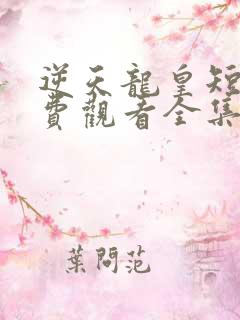 逆天龍皇短
費觀看全集
葉問范